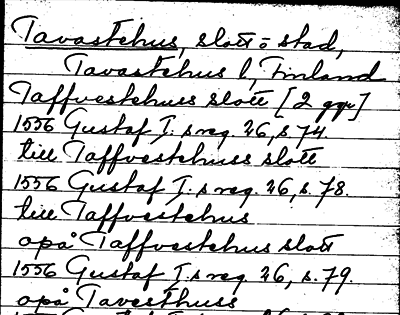 Tavastehus, slott o stad,
Tavastehus l, Finland
Taffvestehuss slott [2 ggr]
1556 Gustaf I:s reg. 26, s 74.
till Taffvestehuss slott
1556 Gustaf I:s reg. 26, s. 78.
till Taffvestehus
opå Taffvestehus slott
1556 Gustaf I:s reg. 26, s. 79.
opå Tavesthuss